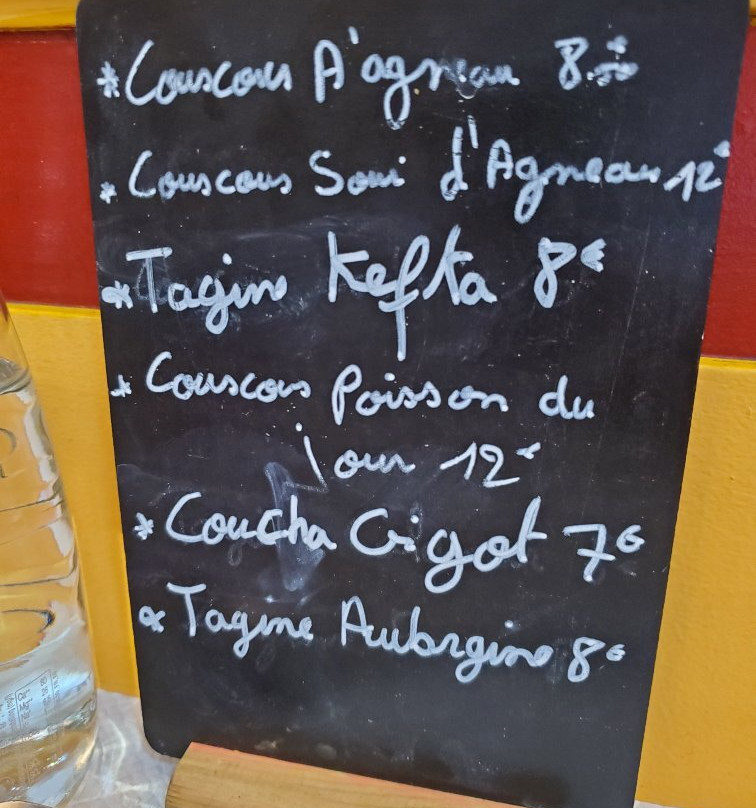 *Couscous A'agneau 8.
* Couscous Souri d'Agneau 12€
*Tagine Kefta 8€
* Couscous Poisson du
jour 12€
* Coucha Gigot 7€
* Tagine Aubergine 8€